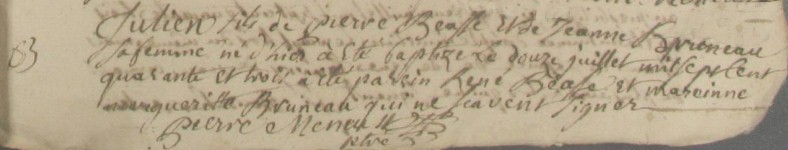 Julien fils de pierre Beasse Et de Jeanne Bruneau
B sa femme né d'hier à Eté baptizé Le douze juillet mil sept Cent
quarante et trois à été parein René Beasse et mareinne
margueritte Bruneau qui ne scavent signer
pierre Menault
ptre